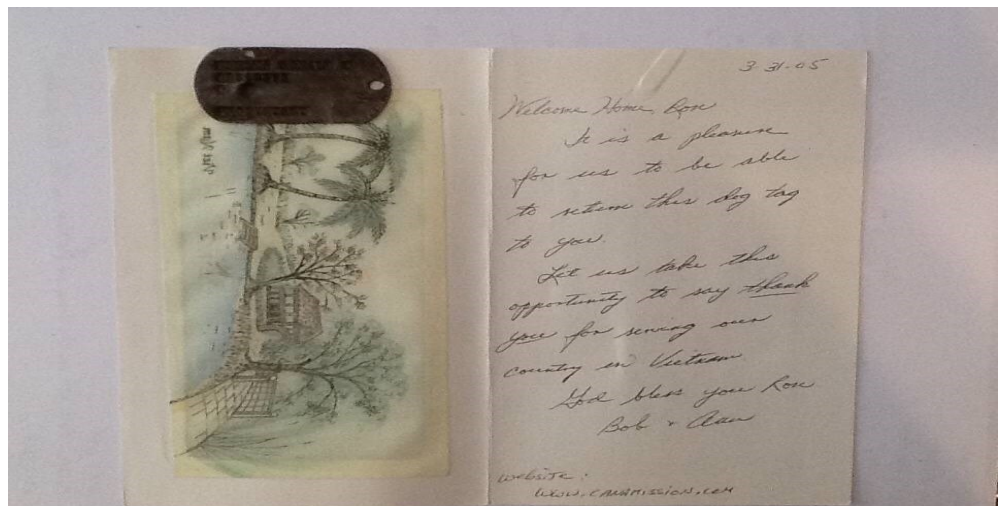 3-31-05
Welcome Home, Ron
It is a pleasure
for us to be able
to return this dog tag
to you.
Let us take this
opportunity to say thank
you for serving our
country in Vietnam
God bless you Ron
Bob + Ann
website: